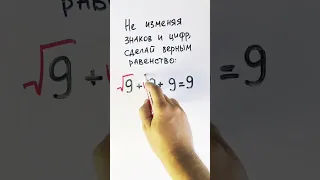 Не изменяя
знаков и цифр,
сделай верным
равенство:
√9 + 9 + 9 = 9